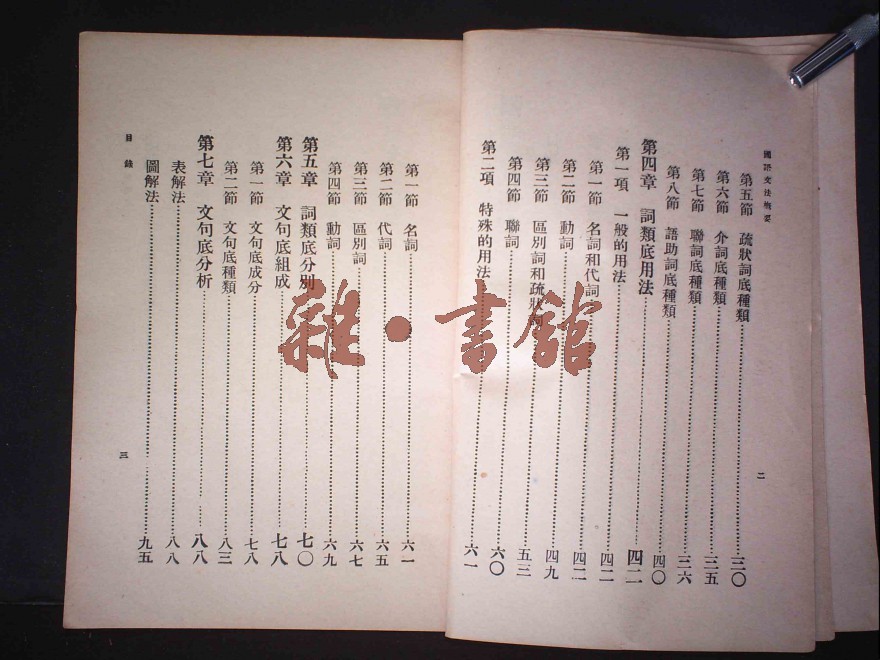 國語文法概要
第五節 疏狀詞底種類 三〇
第六節 介詞底種類 三五
第七節 聯詞底種類 三六
第八節 語助詞底種類 四〇
第四章 詞類底用法 四二
第一項 一般的用法 四二
第一節 名詞和代詞 四二
第二節 動詞 四二
第三節 區別詞和疏狀詞 四九
第四節 聯詞 五三
第二項 特殊的用法 六〇
二
第一節 名詞 六一
第二節 代詞 六五
第三節 區別詞 六七
第四節 動詞 六九
第五章 詞類底分別 七〇
第六章 文句底組成 七八
第一節 文句底成分 七八
第二節 文句底種類 八三
第七章 文句底分析 八八
表解法 八八
圖解法 九五
目錄
三
雜·書館